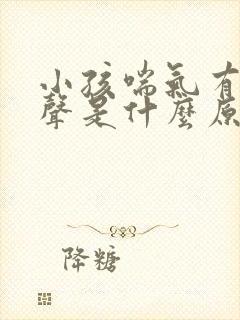 小孩喘氣有
聲是什麼原
降糖